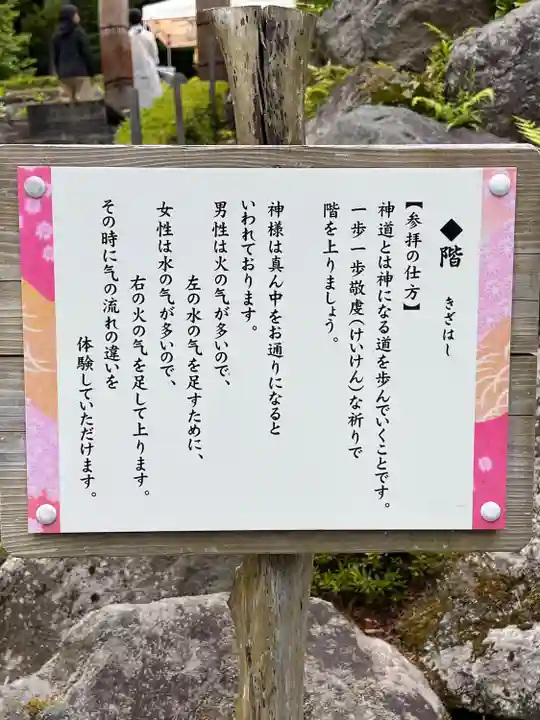 ◆階 きざはし
【参拝の仕方】
神道とは神になる道を歩んでいくことです。
一歩一歩敬虔(けいけん)な祈りで
階を上りましょう。
神様は真ん中をお通りになると
いわれております。
男性は火の気が多いので、
左の水の気を足すために、
女性は水の気が多いので、
右の火の気を足して上ります。
その時に気の流れの違いを
体験していただけます。